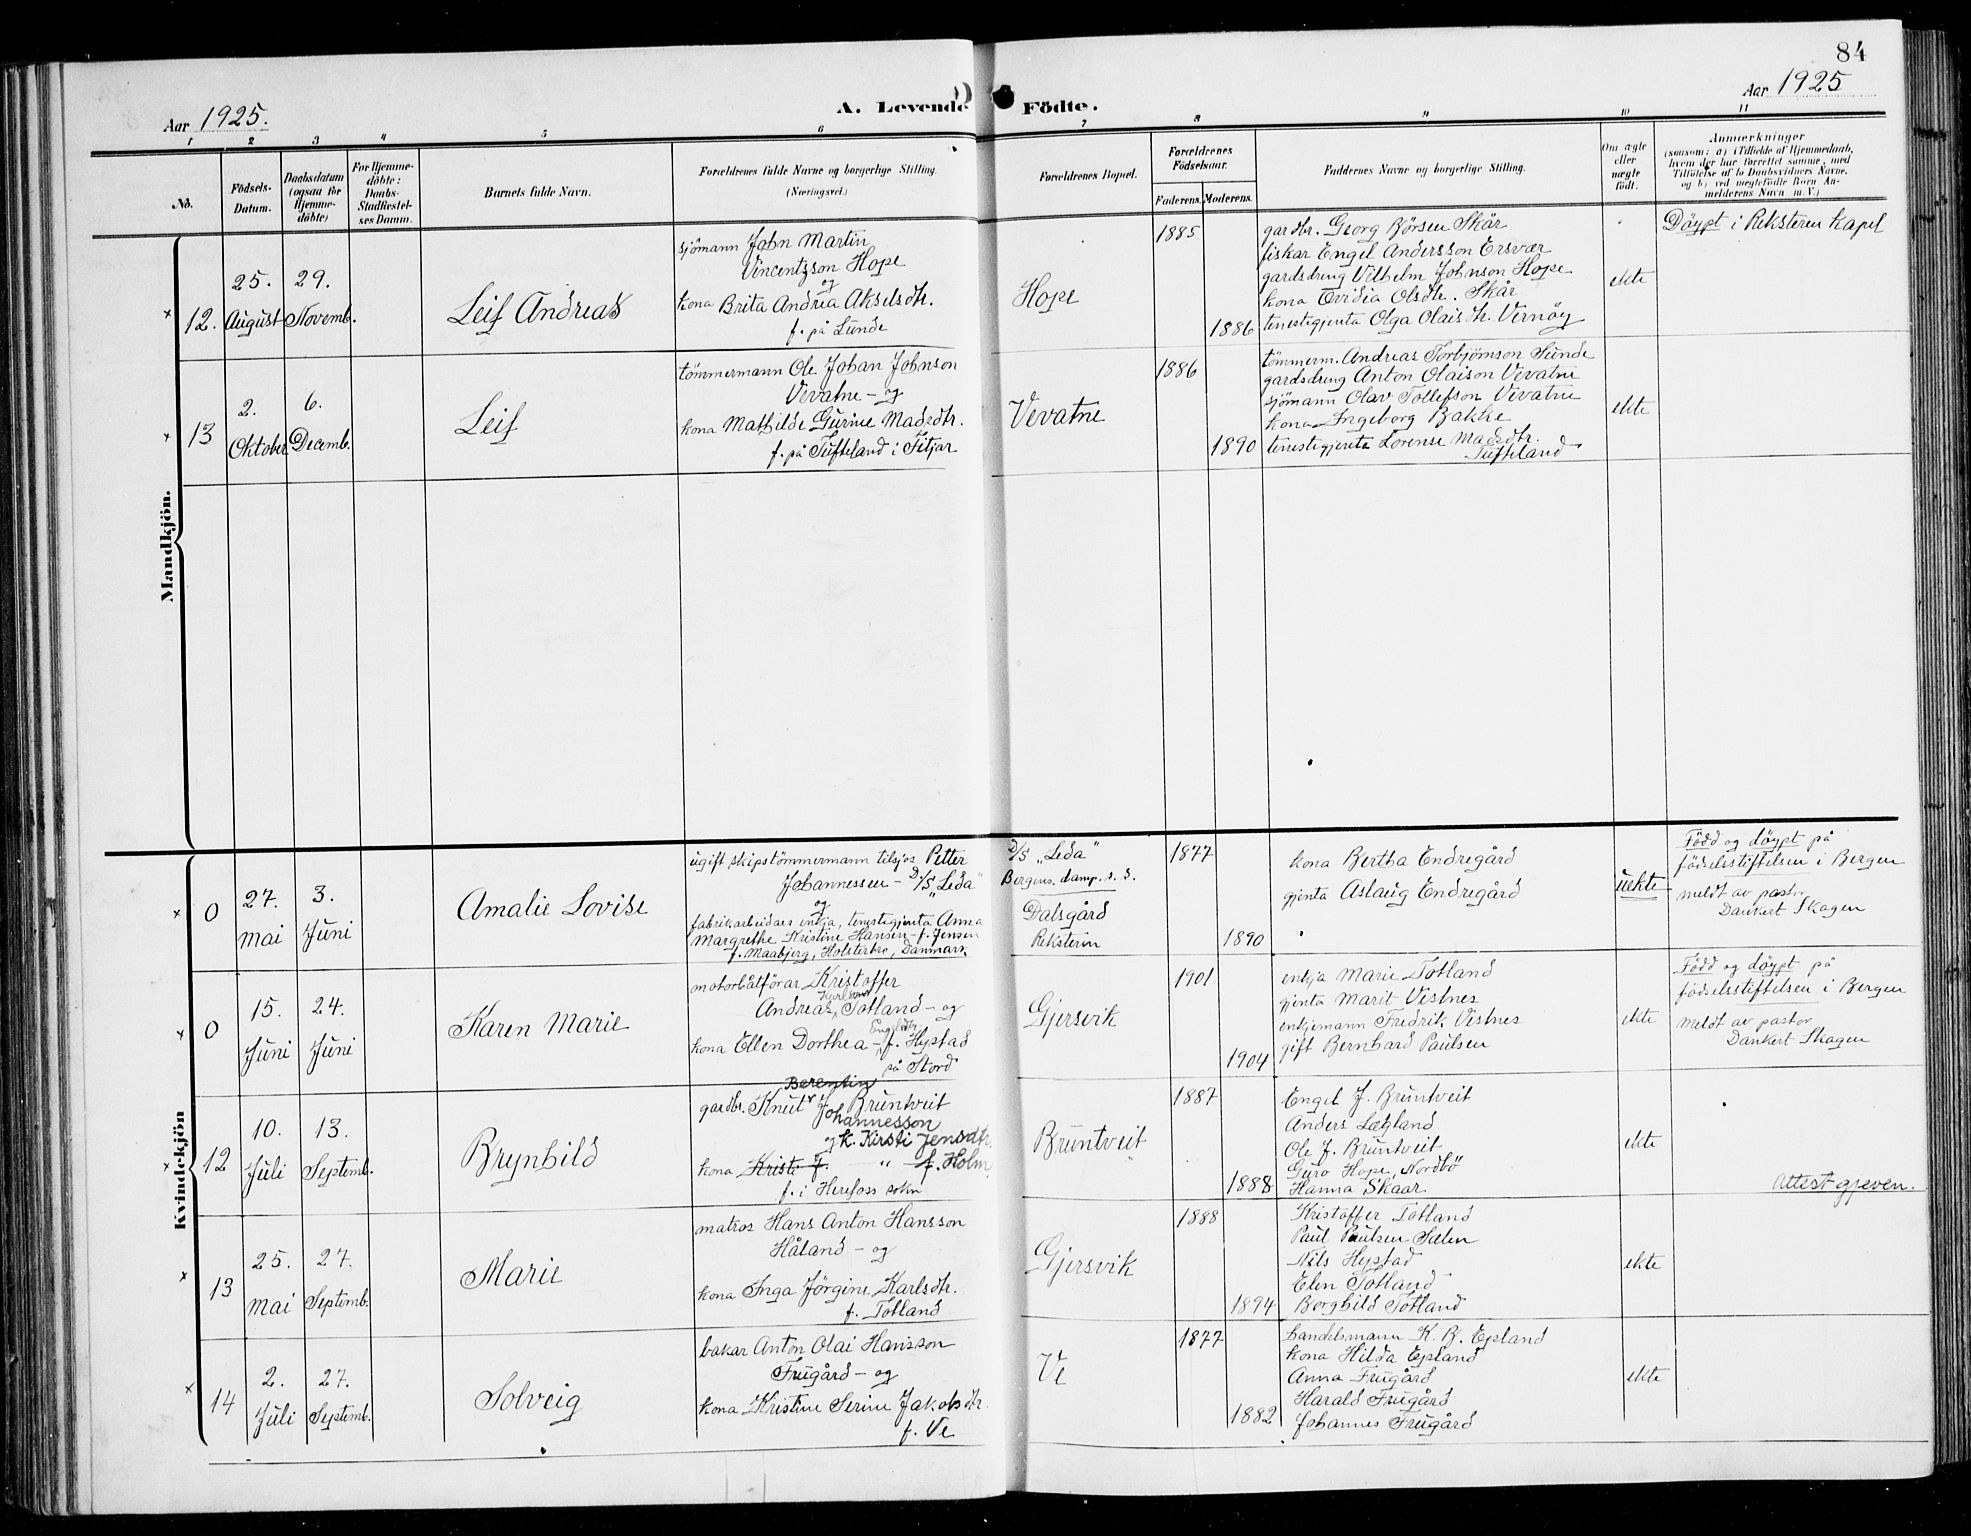 84
Aar 1925.
A. Levende Födte.
Aar 1925
1 2 3 4 5 6 7 8 9 10 11
No.
Födsels-
Datum.
Daabsdatum
(ogsaa for
Hjemme-
döbte)
For Hjemme-
döbte:
Daabs-
Stadfæstel-
ses Datum.
Barnets fulde Navn.
Forældrenes fulde Navne og borgerlige Stilling.
(Næringsvei.)
Forældrenes Bopæl.
Forældrenes
Födselsaar.
Faderens. Moderens.
Faddernes Navne og borgerlige Stilling.
Om ægte
eller
uægte
födt.
Anmærkninger
(saasom: a) i Tilfælde af Hjemmedaab,
hvem der har forrettet samme, med
Tilföielse af to Daabsvidners Navne,
og b) ved uægtefödte Börn An-
melderens Navn m. V.)
Mandkjön.
× 12.
25.
August
29.
Novemb.
Leif Andreas
sjömann John Martin
Vincentzson Hope
og
kona Brita Andrea Akselsdtr.
f. på Lunde
Hope
1885
1886
gardbr. Georg Börsen Skår
fiskar Engel Andersson Ersvær
gardsdreng Vilhelm Johnson Hope
kona Ovidia Olsdtr. Skår
tenestegjenta Olga Olaisdtr. Vernöy
ekte
Döypt i Reksteren kapel
× 13
2.
Oktober
6.
Decemb.
Leif
tömmermann Ole Johan Johnson
Vevatne - og
kona Mathilde Gurine Madsdtr.
f. på Tufteland i Fitjar
Vevatne
1886
1890
tömmerm. Andreas Torbjörnson Sunde
gardsdreng Anton Olaison Vevatne
sjömann Olav Tollefson Vevatne
kona Ingeborg Bakke
tenestegjenta Lorense Madsdtr.
Tufteland
ekte
Kvindekjön
× 0
27.
mai
3.
Juni
Amalie Lovise
ugift skipstömmermann tilsjos Petter
Johannessen - D/S "Leda"
og
fabrikarbeidars enkja, tenestegjenta Anna
Margrethe Kristine Hansen - f. Jensen
f. Maabjerg, Holsterbro, Danmark.
D/S "Leda"
Bergens. damp. s. s.
Dalsgård
Reksteren
1877
1890
kona Bertha Endregård
gjenta Aslaug Endregård
uekte
Född og döypt på
födselsstiftelsen i Bergen
meldt av pastor
Dankert Skagen
× 0
15.
Juni
24.
Juni
Karen Marie
motorbåtförar Kristoffer
Karlson
Andreas Totland - og
Engelsdtr
kona Ellen Dorthea - f. Hystad
på Stord
Gjersvik
1901
1904
enkja Marie Totland
gjenta Marit Vestnes
enkjemann Fredrik Vestnes
gift Bernhard Paulsen
ekte
Född og döypt på
födselsstiftelsen i Bergen
meldt av pastor
Dankert Skagen
× 12
10.
Juli
13.
Septemb.
Brynhild
Berentin
gardbr. Knut J. Bruntveit
Johannesson
og k. Kirsti Jensdtr.
kona Kristi J. — " — f. Holm
f. i Herefoss sokn
Bruntveit
1887
1888
Engel J. Bruntveit
Anders Lætland
Ole J. Bruntveit
Guro Hope, Nordbö
Hanna Skaar
ekte
Attest gjeven.
× 13
25.
mai
27.
Septemb.
Marie
matros Hans Anton Hansson
Håland - og
kona Inga Jörgine Karlsdtr.
f. Totland
Gjersvik
1888
1894
Kristoffer Totland
Paul Paulsen Sælen
Nils Hystad
Elen Totland
Borghild Totland
ekte
× 14
2.
Juli
27.
Septemb.
Solveig
bakar Anton Olai Hansson
Frugård - og
kona Kristine Serine Jakobsdtr.
f. Ve
Ve
1877
1882
handelsmann K. B. Epland
kona Hilda Epland
Anna Frugård
Harald Frugård
Johannes Frugård
ekte